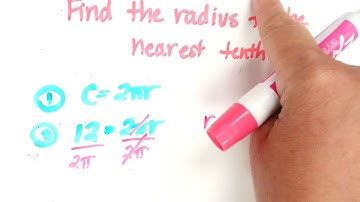 Find the radius to the
nearest tenth
① C = 2πr
② 12 = 2πr
2π 2π
r